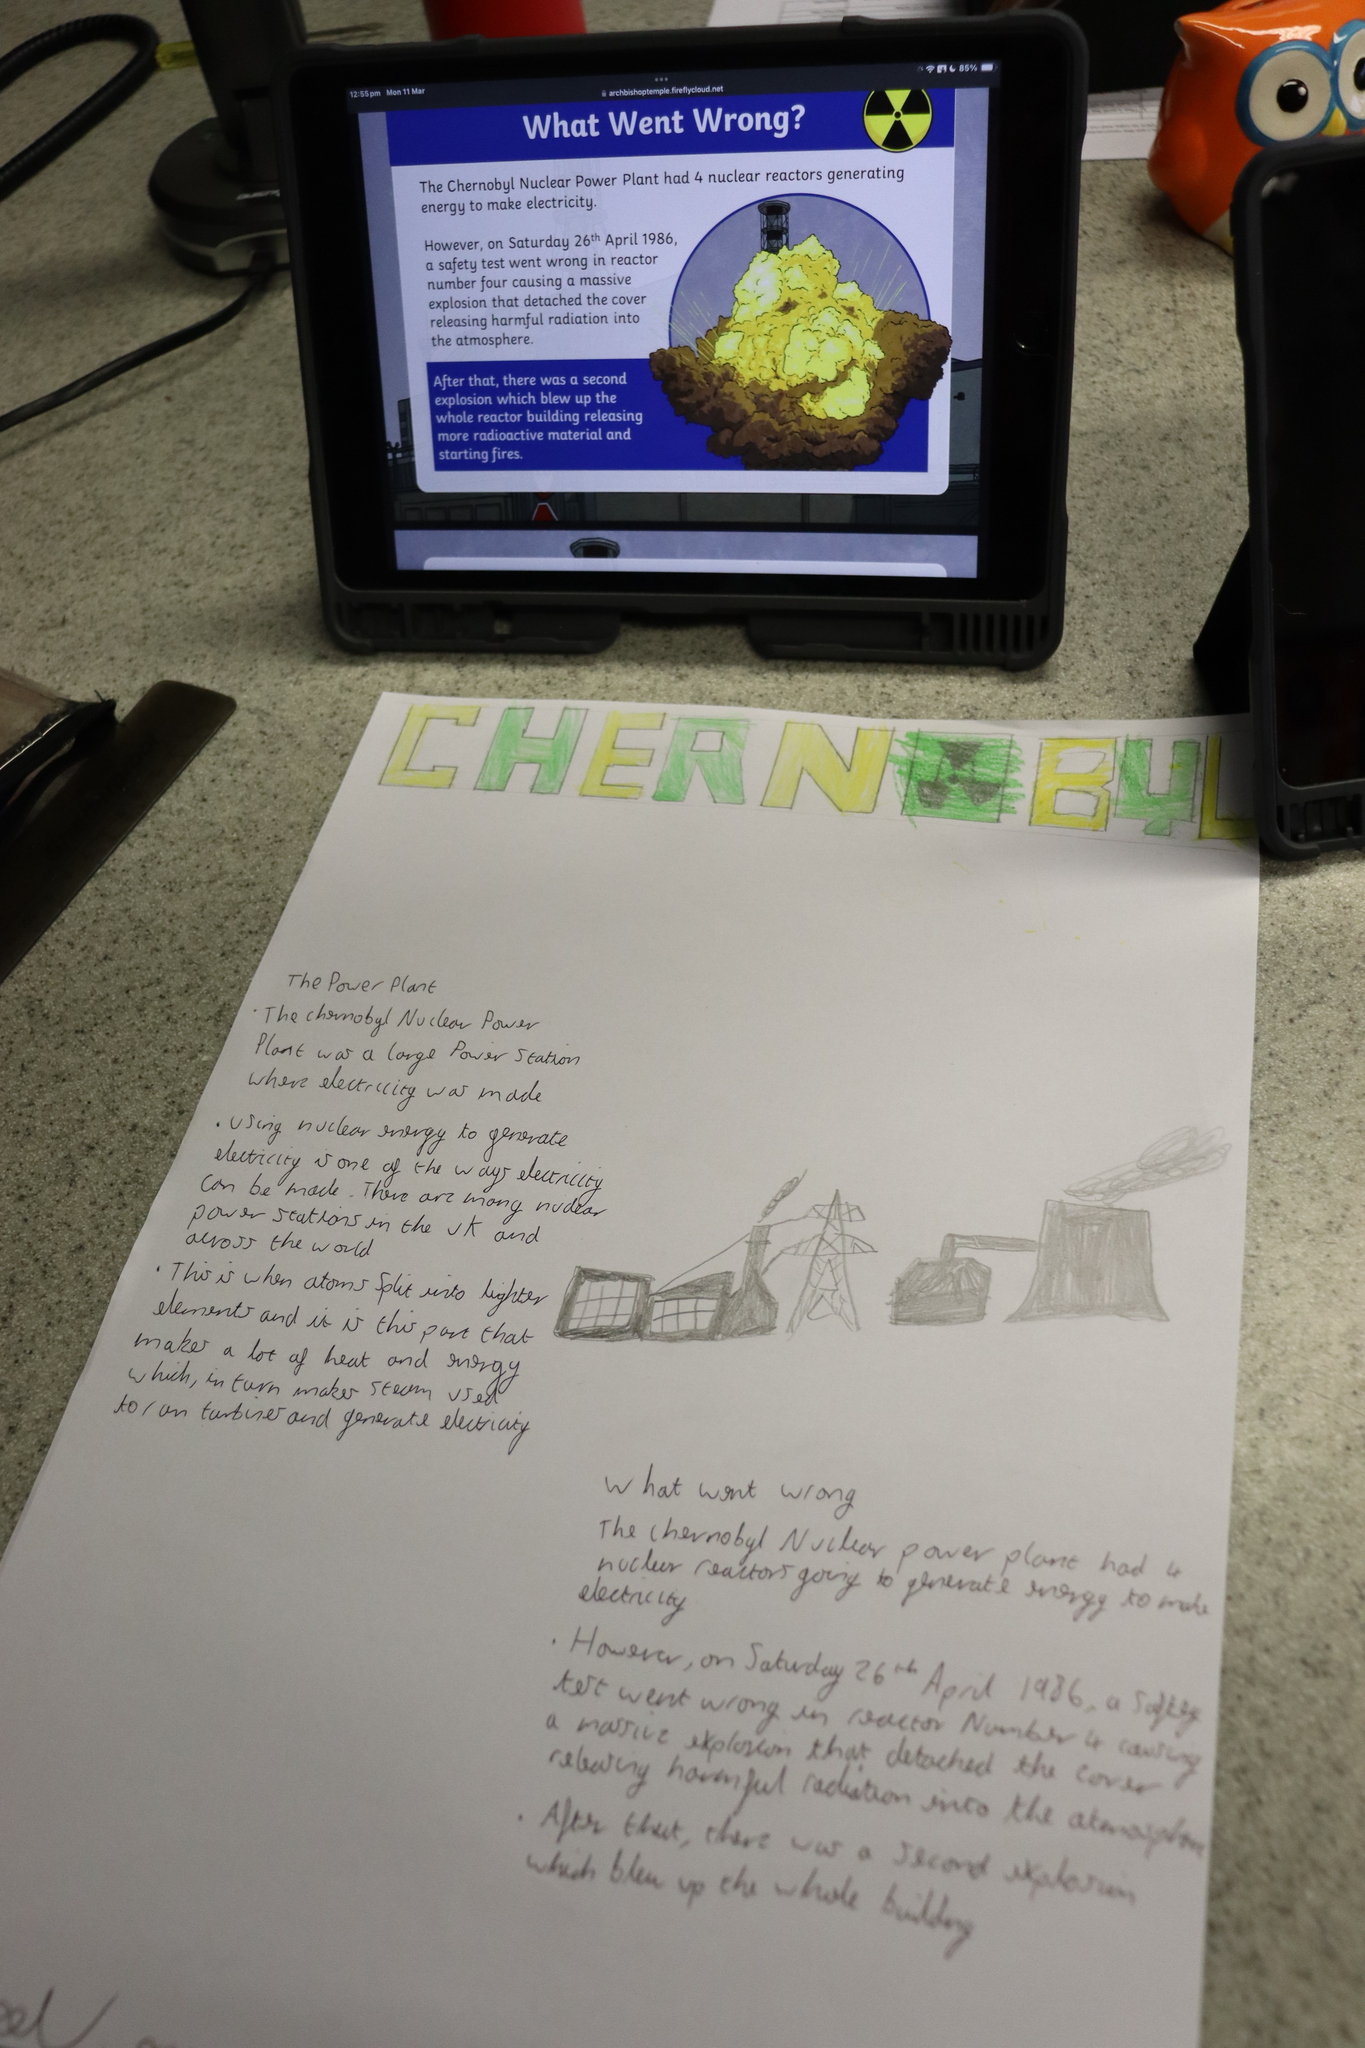 12:55pm Mon 11 Mar
85%
archbishoptemple.fireflycloud.net
What Went Wrong?
The Chernobyl Nuclear Power Plant had 4 nuclear reactors generating
energy to make electricity.
However, on Saturday 26th April 1986,
a safety test went wrong in reactor
number four causing a massive
explosion that detached the cover
releasing harmful radiation into
the atmosphere.
After that, there was a second
explosion which blew up the
whole reactor building releasing
more radioactive material and
starting fires.
CHERNOBYL
The Power Plant
· The chernobyl Nuclear Power
Plant was a large Power station
where electricity was made
· Using nuclear energy to generate
electricity is one of the ways electricity
can be made. There are many nuclear
power stations in the UK and
across the world
· This is when atoms split into lighter
elements and it is this part that
makes a lot of heat and energy
which, in turn makes steam used
to ran turbines and generate electricity
What went wrong
The chernobyl Nuclear power plant had 4
nuclear reactors going to generate energy to make
electricity
· However, on Saturday 26th April 1986, a safety
test went wrong in reactor Number 4 causing
a massive explosion that detached the cover
releasing harmful radiation into the atomosphere
· After that, there was a second explosion
which blew up the whole building